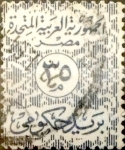 الجمهورية العربية المتحدة
مصر
٣٥
بريد حكومى